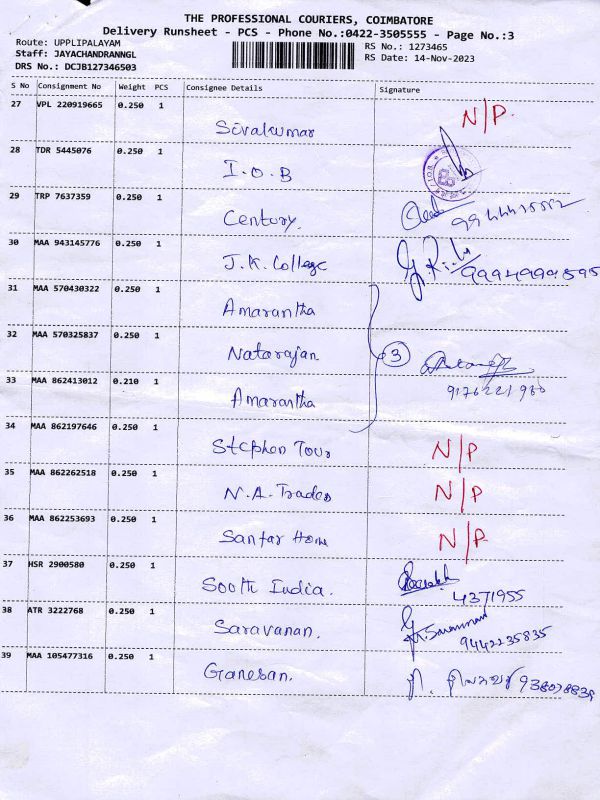 THE PROFESSIONAL COURIERS, COIMBATORE
Delivery Runsheet - PCS - Phone No.:0422-3505555 - Page No.:3
Route: UPPLIPALAYAM
Staff: JAYACHANDRANNGL
DRS No.: DCJB127346503
RS No.: 1273465
RS Date: 14-Nov-2023
S No Consignment No Weight PCS Consignee Details Signature
27 VPL 220919665 0.250 1 Sivakumar N/P
28 TDR 5445076 0.250 1 I.O.B
29 TRP 7637359 0.250 1 Century.
30 MAA 943145776 0.250 1 J.K. College
31 MAA 570430322 0.250 1 Amarantha
32 MAA 570325837 0.250 1 Natarajan 3
33 MAA 862413012 0.210 1 Amarantha 9176221980
34 MAA 862197646 0.250 1 Stephen Tour N/P
35 MAA 862262518 0.250 1 N.A. Trades N/P
36 MAA 862253693 0.250 1 N/P
37 HSR 2900580 0.250 1 Sooth India. 4371955
38 ATR 3222768 0.250 1 Saravanan. 9442235835
39 MAA 105477316 0.250 1 Ganesan.